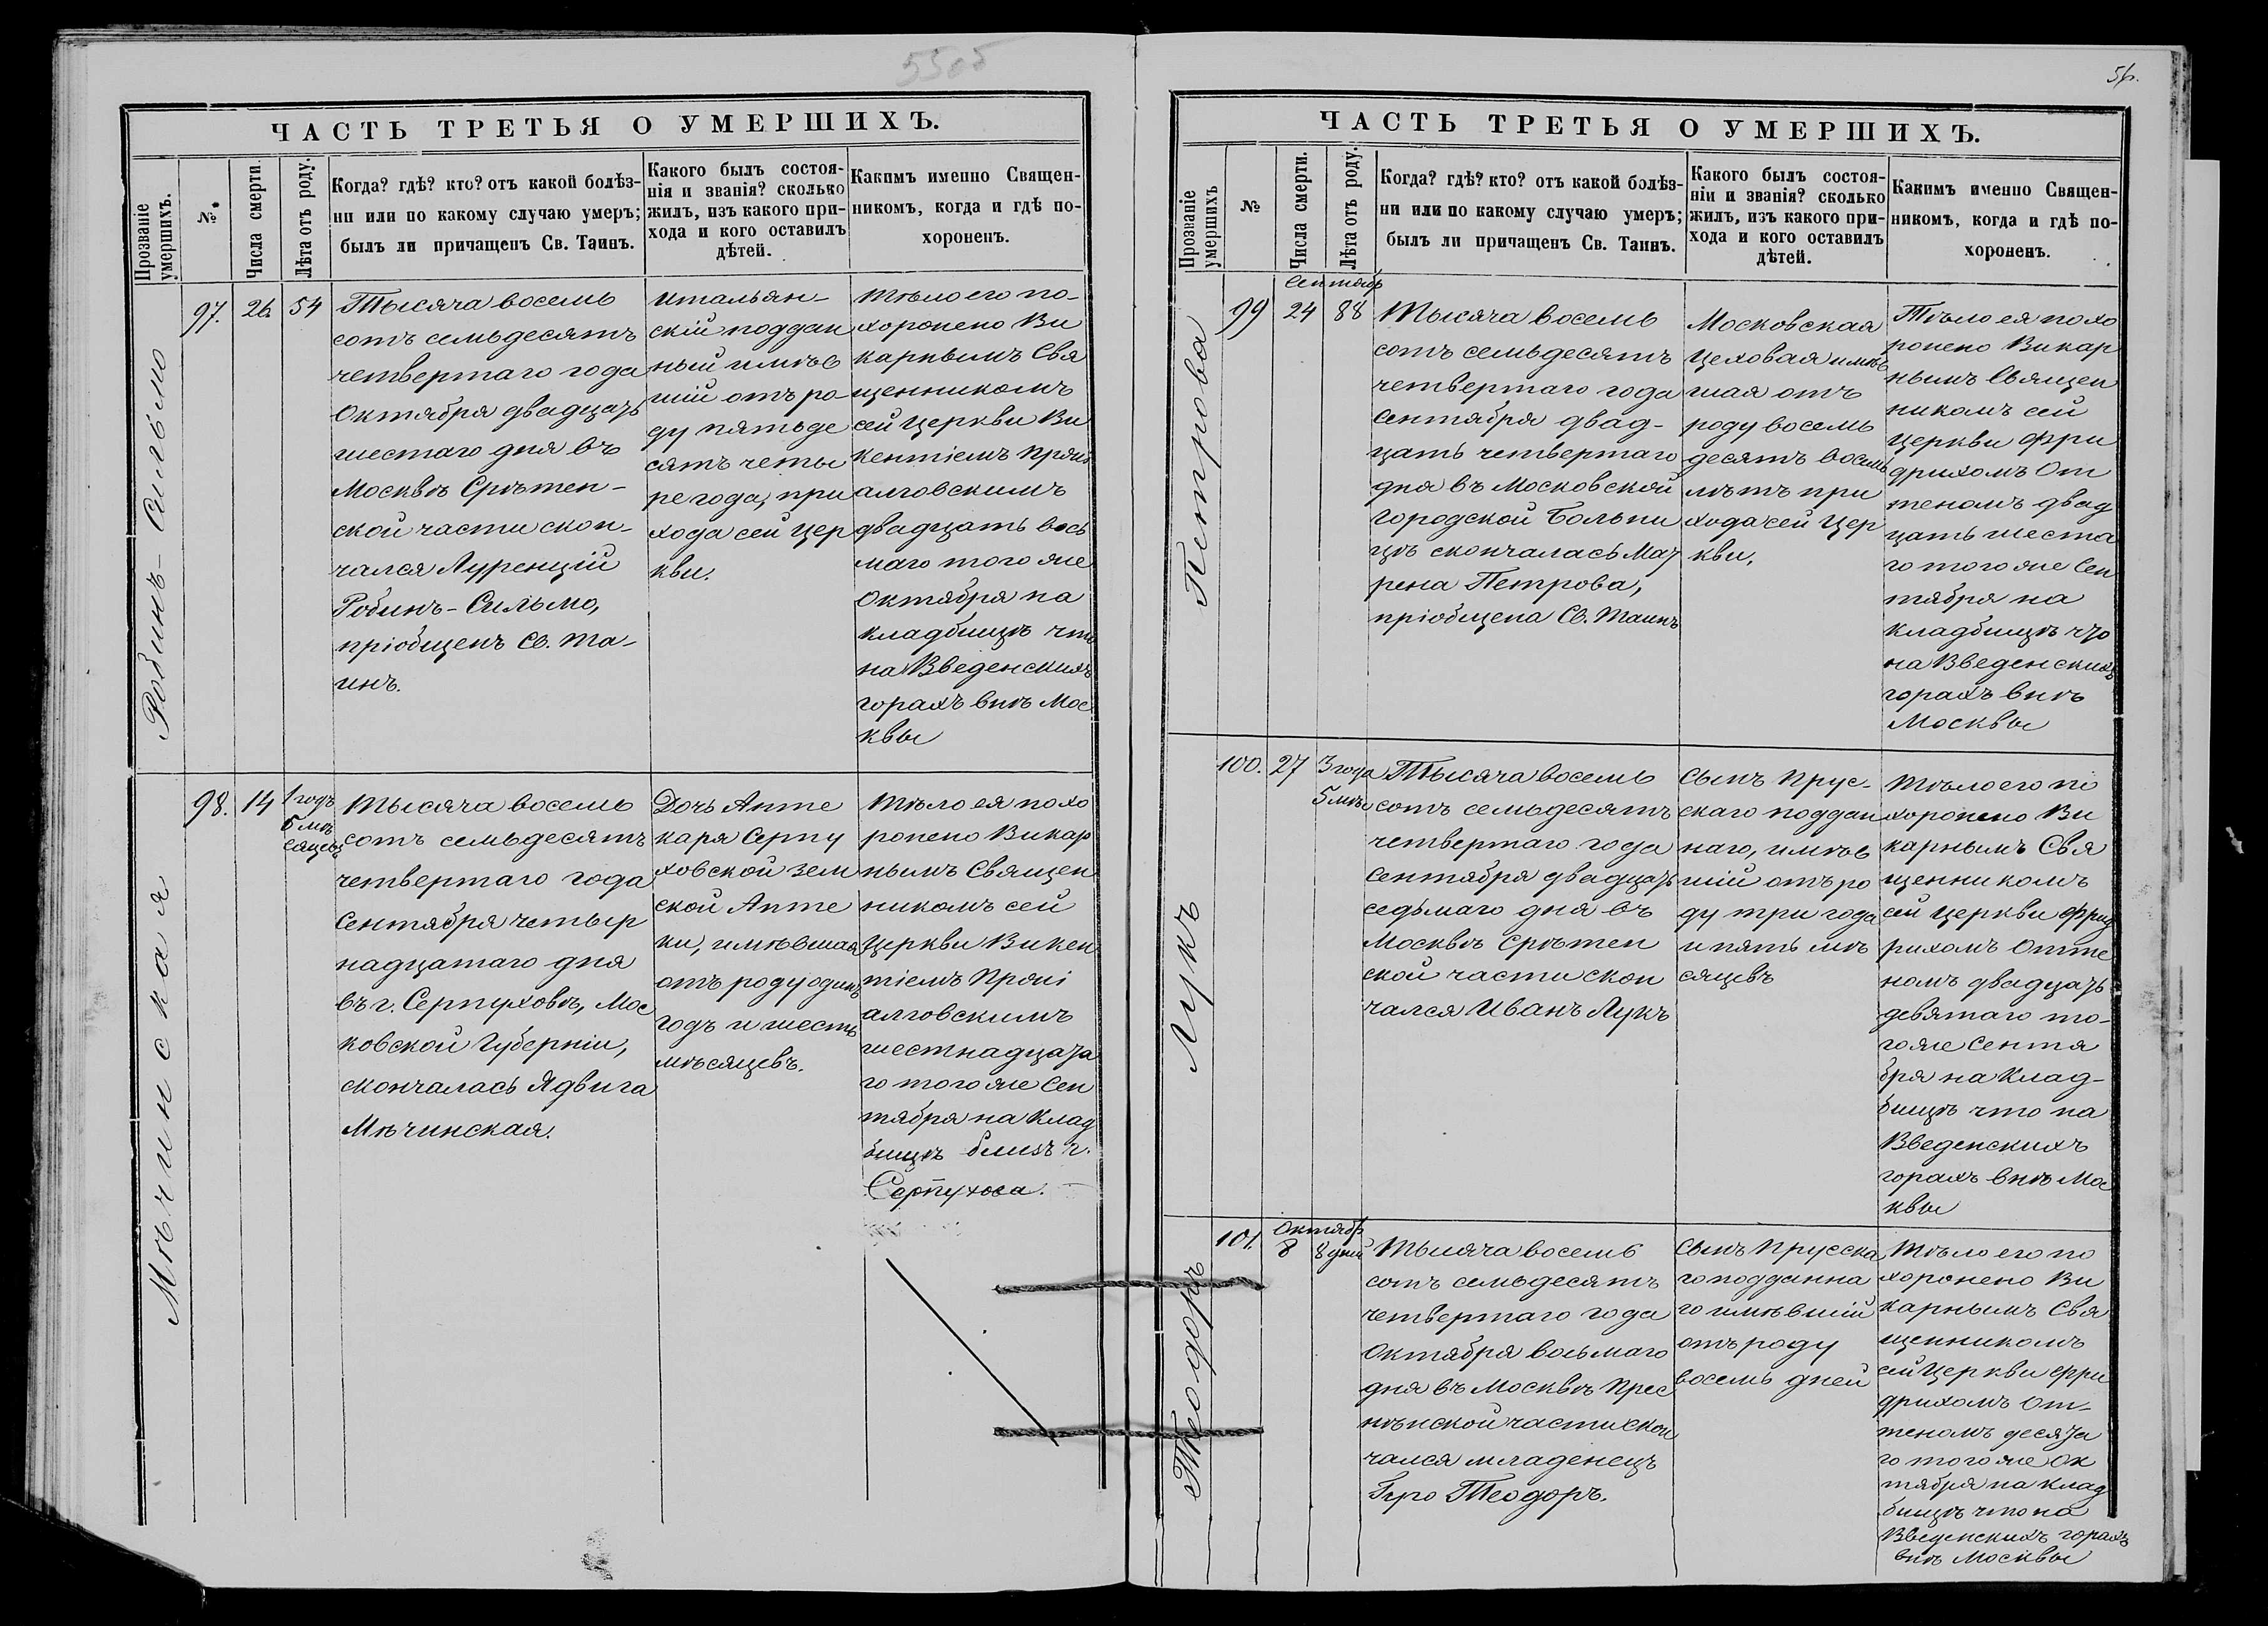 ЧАСТЬ ТРЕТЬЯ О УМЕРШИХЪ.
Прозваніе умершихъ.
№
Числа смерти.
Лѣта отъ роду.
Когда? гдѣ? кто? отъ какой болѣз-
ни или по какому случаю умеръ;
былъ ли причащенъ Св. Таинъ.
Какого былъ состоя-
нія и званія? сколько
жилъ, изъ какого при-
хода и кого оставилъ
дѣтей.
Какимъ именно Священ-
никомъ, когда и гдѣ по-
хороненъ.
Робинъ-Сильмо
97.
26.
54
Тысяча восемь
сотъ семьдесятъ
четвертаго года
Октября двадцать
шестаго дня въ
Москвѣ Срѣтен-
ской части скон-
чался Луренцій
Робинъ-Сильмо,
пріобщенъ Св. Та-
инъ.
итальян-
скій поддан
ный имѣв
шій отъ ро
ду пятьде
сятъ четы
ре года, при
хода сей Цер
кви.
тѣло его по-
хоронено Ви
карнымъ Свя
щенникомъ
сей Церкви Ви
кентіемъ Прони
алговскимъ
двадцать вось
маго того же
Октября на
кладбищѣ что
на Введенскихъ
горахъ внѣ Мос
квы
Мѣчинская
98.
14
1 годъ
6 мѣ
сяцевъ
Тысяча восемь
сотъ семьдесятъ
четвертаго года
Сентября четыр
надцатаго дня
въ г. Серпуховѣ, Мос
ковской Губерніи,
скончалась Ядвига
Мѣчинская.
Дочь Апте
каря Серпу
ховской зем
ской Апте
ки, имѣвшая
отъ роду одинъ
годъ и шесть
мѣсяцевъ.
Тѣло ея похо
ронено Викар
нымъ Священ
никомъ сей
Церкви Викен
тіемъ Прони
алговскимъ
шестнадцата
го того же Сен
тября на Клад
бищѣ близъ г.
Серпухова.
ЧАСТЬ ТРЕТЬЯ О УМЕРШИХЪ.
Прозваніе умершихъ
№
Числа смерти.
Лѣта отъ роду.
Когда? гдѣ? кто? отъ какой болѣз-
ни или по какому случаю умеръ;
былъ ли причащенъ Св. Таинъ.
Какого былъ состоя-
ніи и званія? сколько
жилъ, изъ какого при-
хода и кого оставилъ
дѣтей.
Какимъ именно Священ-
никомъ, когда и гдѣ по-
хороненъ.
Петрова
99
Сентябрь
24
88
Тысяча восемь
сотъ семьдесятъ
четвертаго года
Сентября двад-
цать четвертаго
дня въ Московской
городской Больни
цѣ скончалась Мат
рена Петрова,
пріобщена Св. Таинъ
Московская
Цеховая имѣв
шая отъ
роду восемь
десятъ восемь
лѣтъ при
хода сей Цер
кви,
Тѣло ея похо
ронено Викар
нымъ Священ
никомъ сей
Церкви Фри
дрихомъ От
теномъ двад
цать шеста
го того же Сен
тября на
кладбищѣ что
на Введенскихъ
горахъ внѣ
Москвы
Лукъ
100.
27
3 года
5 мѣс
Тысяча восемь
сотъ семьдесятъ
четвертаго года
Сентября двадцать
седьмаго дня въ
Москвѣ Срѣтен
ской части скон
чался Иванъ Лукъ
Сынъ Прус-
скаго поддан
наго, имѣв
шій отъ ро
ду три года
и пять мѣ
сяцевъ
Тѣло его по
хоронено Ви
карнымъ Свя
щенникомъ
сей Церкви Фрид
рихомъ Отте
номъ двадцать
девятаго то-
гоже Сентя
бря на Клад-
бищѣ что на
Введенскихъ
горахъ внѣ Мос
квы
Теодоръ
101.
Октябрь
8
8 дней
Тысяча восемь
сотъ семьдесятъ
четвертаго года
Октября восьмаго
дня въ Москвѣ Прес
нѣнской части скон
чался младенецъ
Гуго Теодоръ.
Сынъ Прусска
го подданна
го имѣвшій
отъ роду
восемь дней
Тѣло его по
хоронено Ви
карнымъ Свя
щенникомъ
сей Церкви Фри
дрихомъ От-
теномъ десята
го того же Ок
тября на клад
бищѣ что на
Введенскихъ горахъ
внѣ Москвы